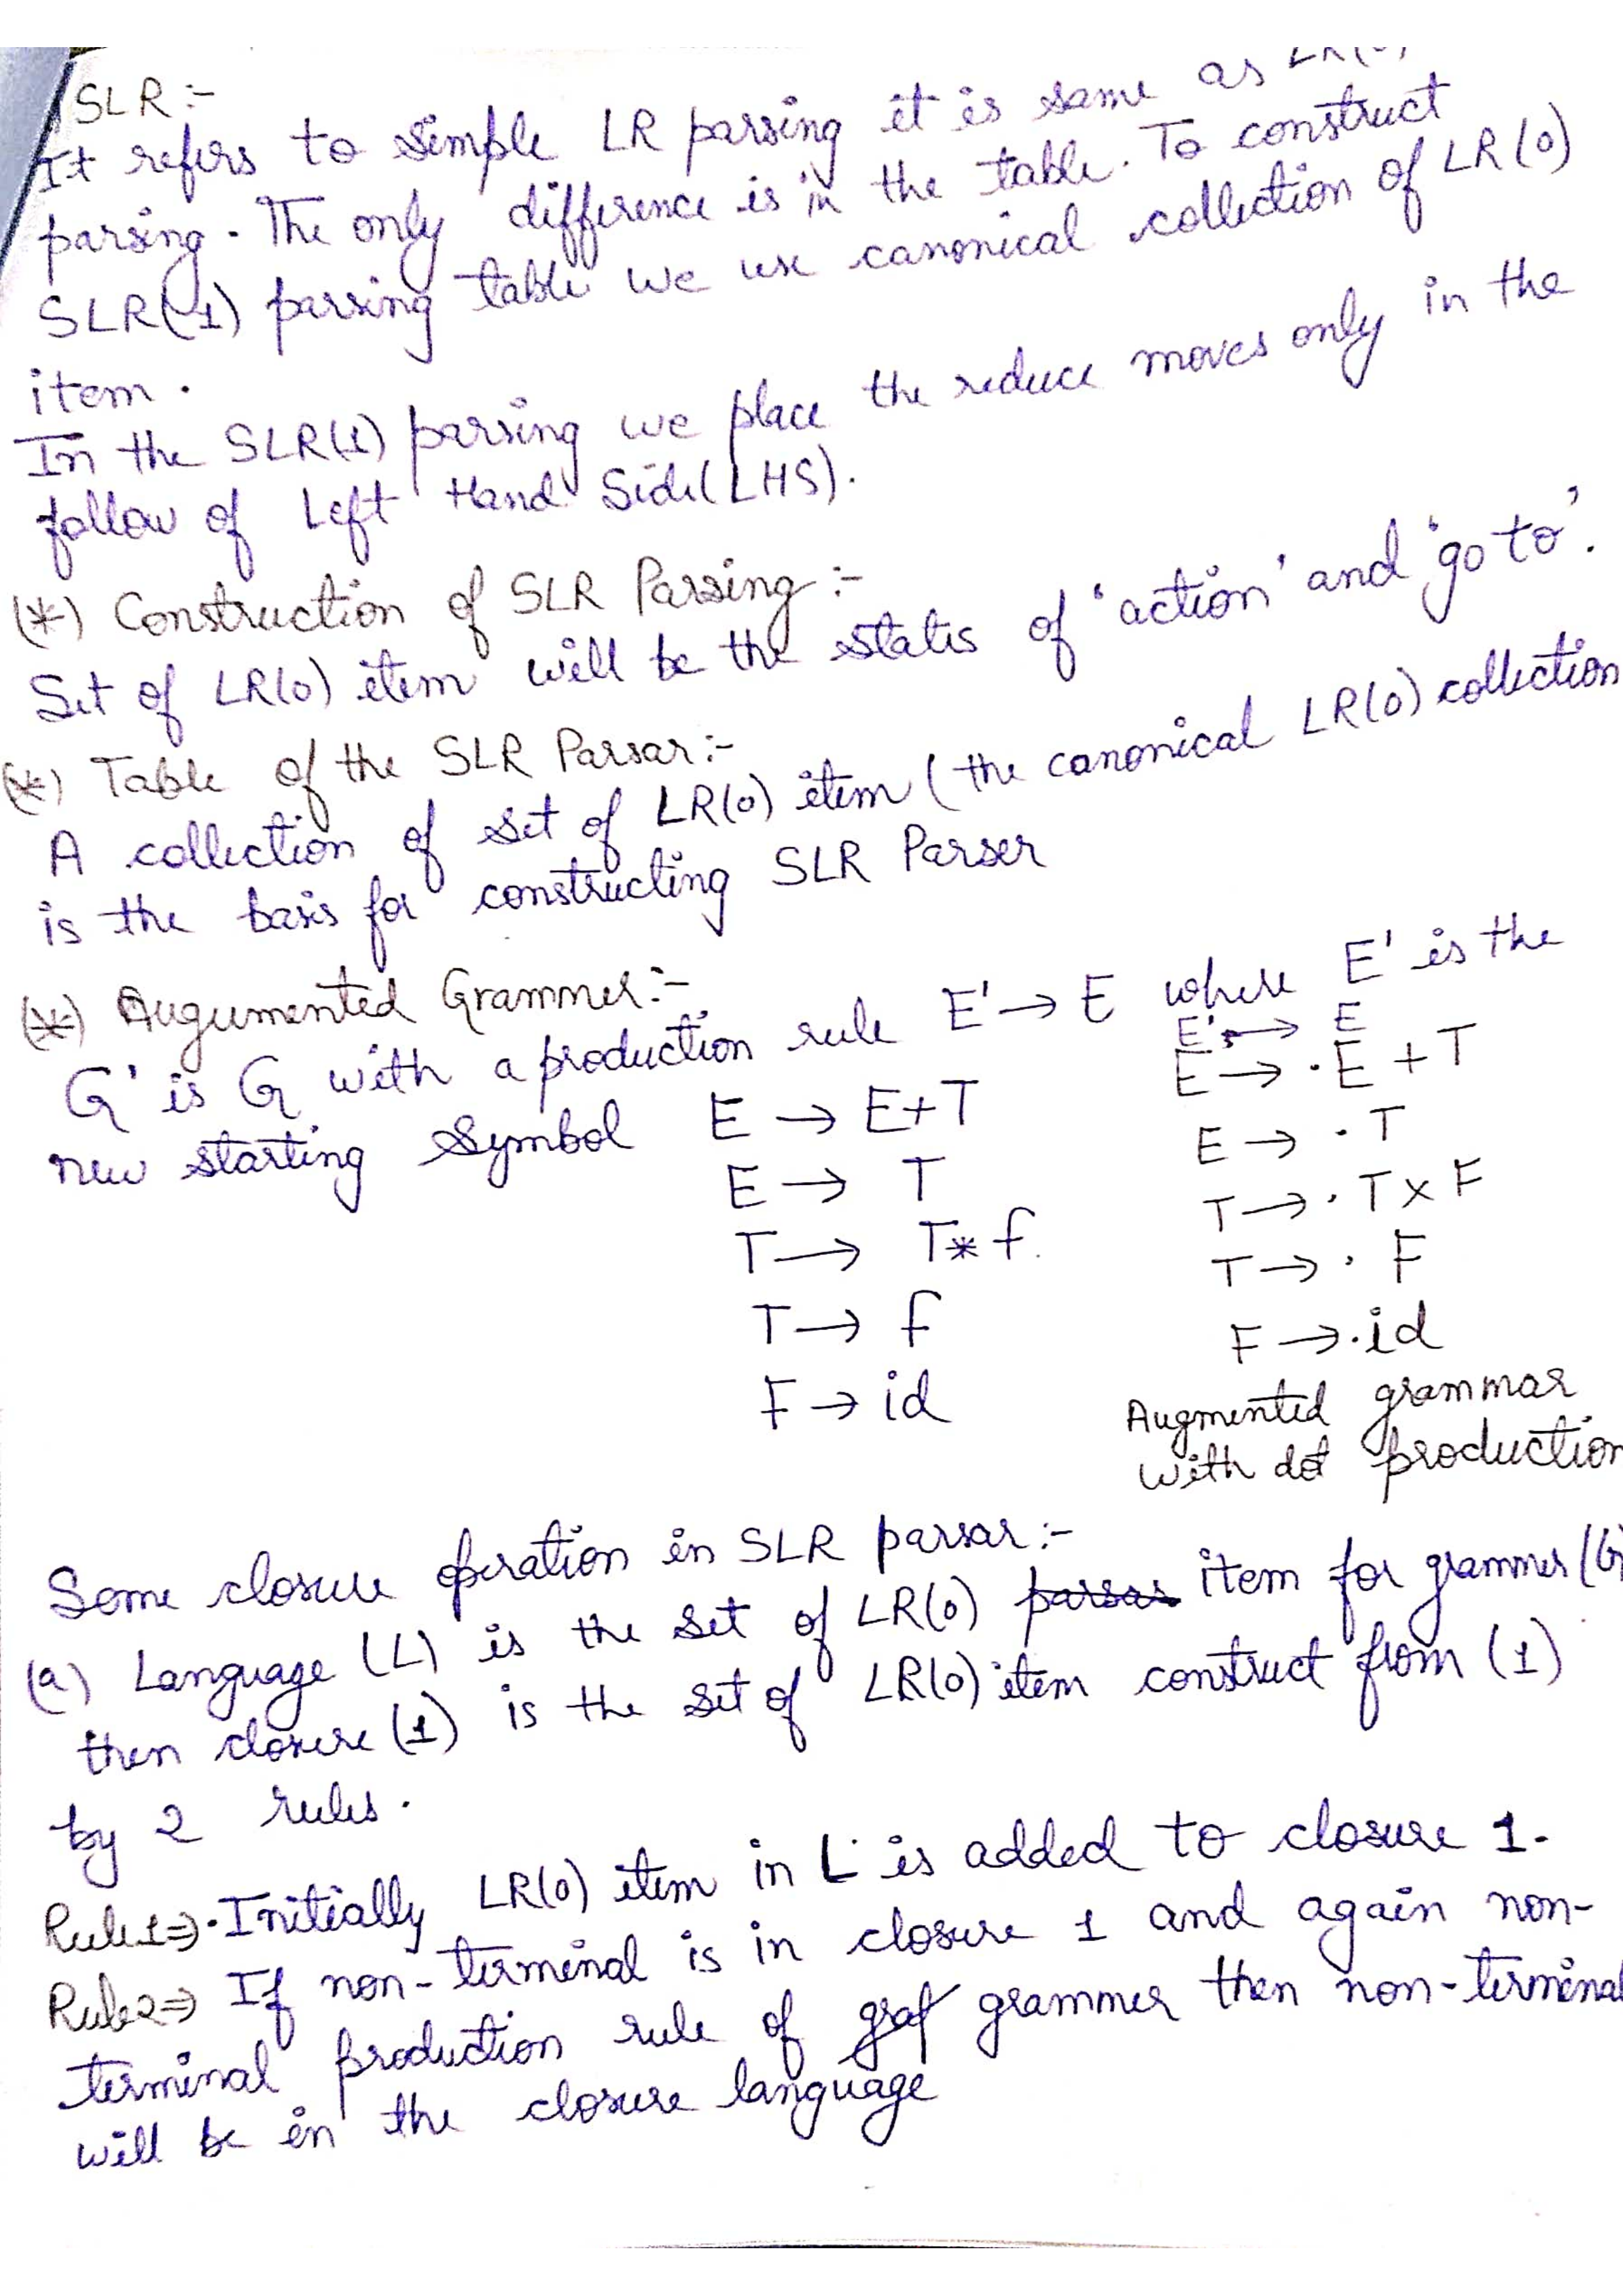 SLR :-
It refers to simple LR parsing it is same as LR(0)
parsing. The only difference is in the table. To construct
SLR(1) parsing table we use canonical collection of LR(0)
item.
In the SLR(1) parsing we place the reduce moves only in the
follow of Left Hand Side(LHS).
(*) Construction of SLR Parsing :-
Set of LR(0) item will be the states of 'action' and 'go to'.
(*) Table of the SLR Parsar :-
A collection of set of LR(0) item (the canonical LR(0) collection
is the basis for constructing SLR Parser
(*) Augumented Grammer :-
G' is G with a production rule E' → E where E' is the
new starting Symbol
E → E+T
E → T
T → T* f
T → f
F → id
E' → E
E → .E + T
E → .T
T → .T x F
T → . F
F → .id
Augmented grammar
with dot production
Some closure operation in SLR parsar :-
(a) Language (L) is the set of LR(0) parsar item for grammer (G)
then closure (1) is the set of LR(0) item construct from (1)
by 2 rules.
Rule1⇒ .Initially LR(0) item in L is added to closure 1.
Rule2⇒ If non-terminal is in closure 1 and again non-
terminal production rule of graf grammer then non-terminal
will be in the closure language